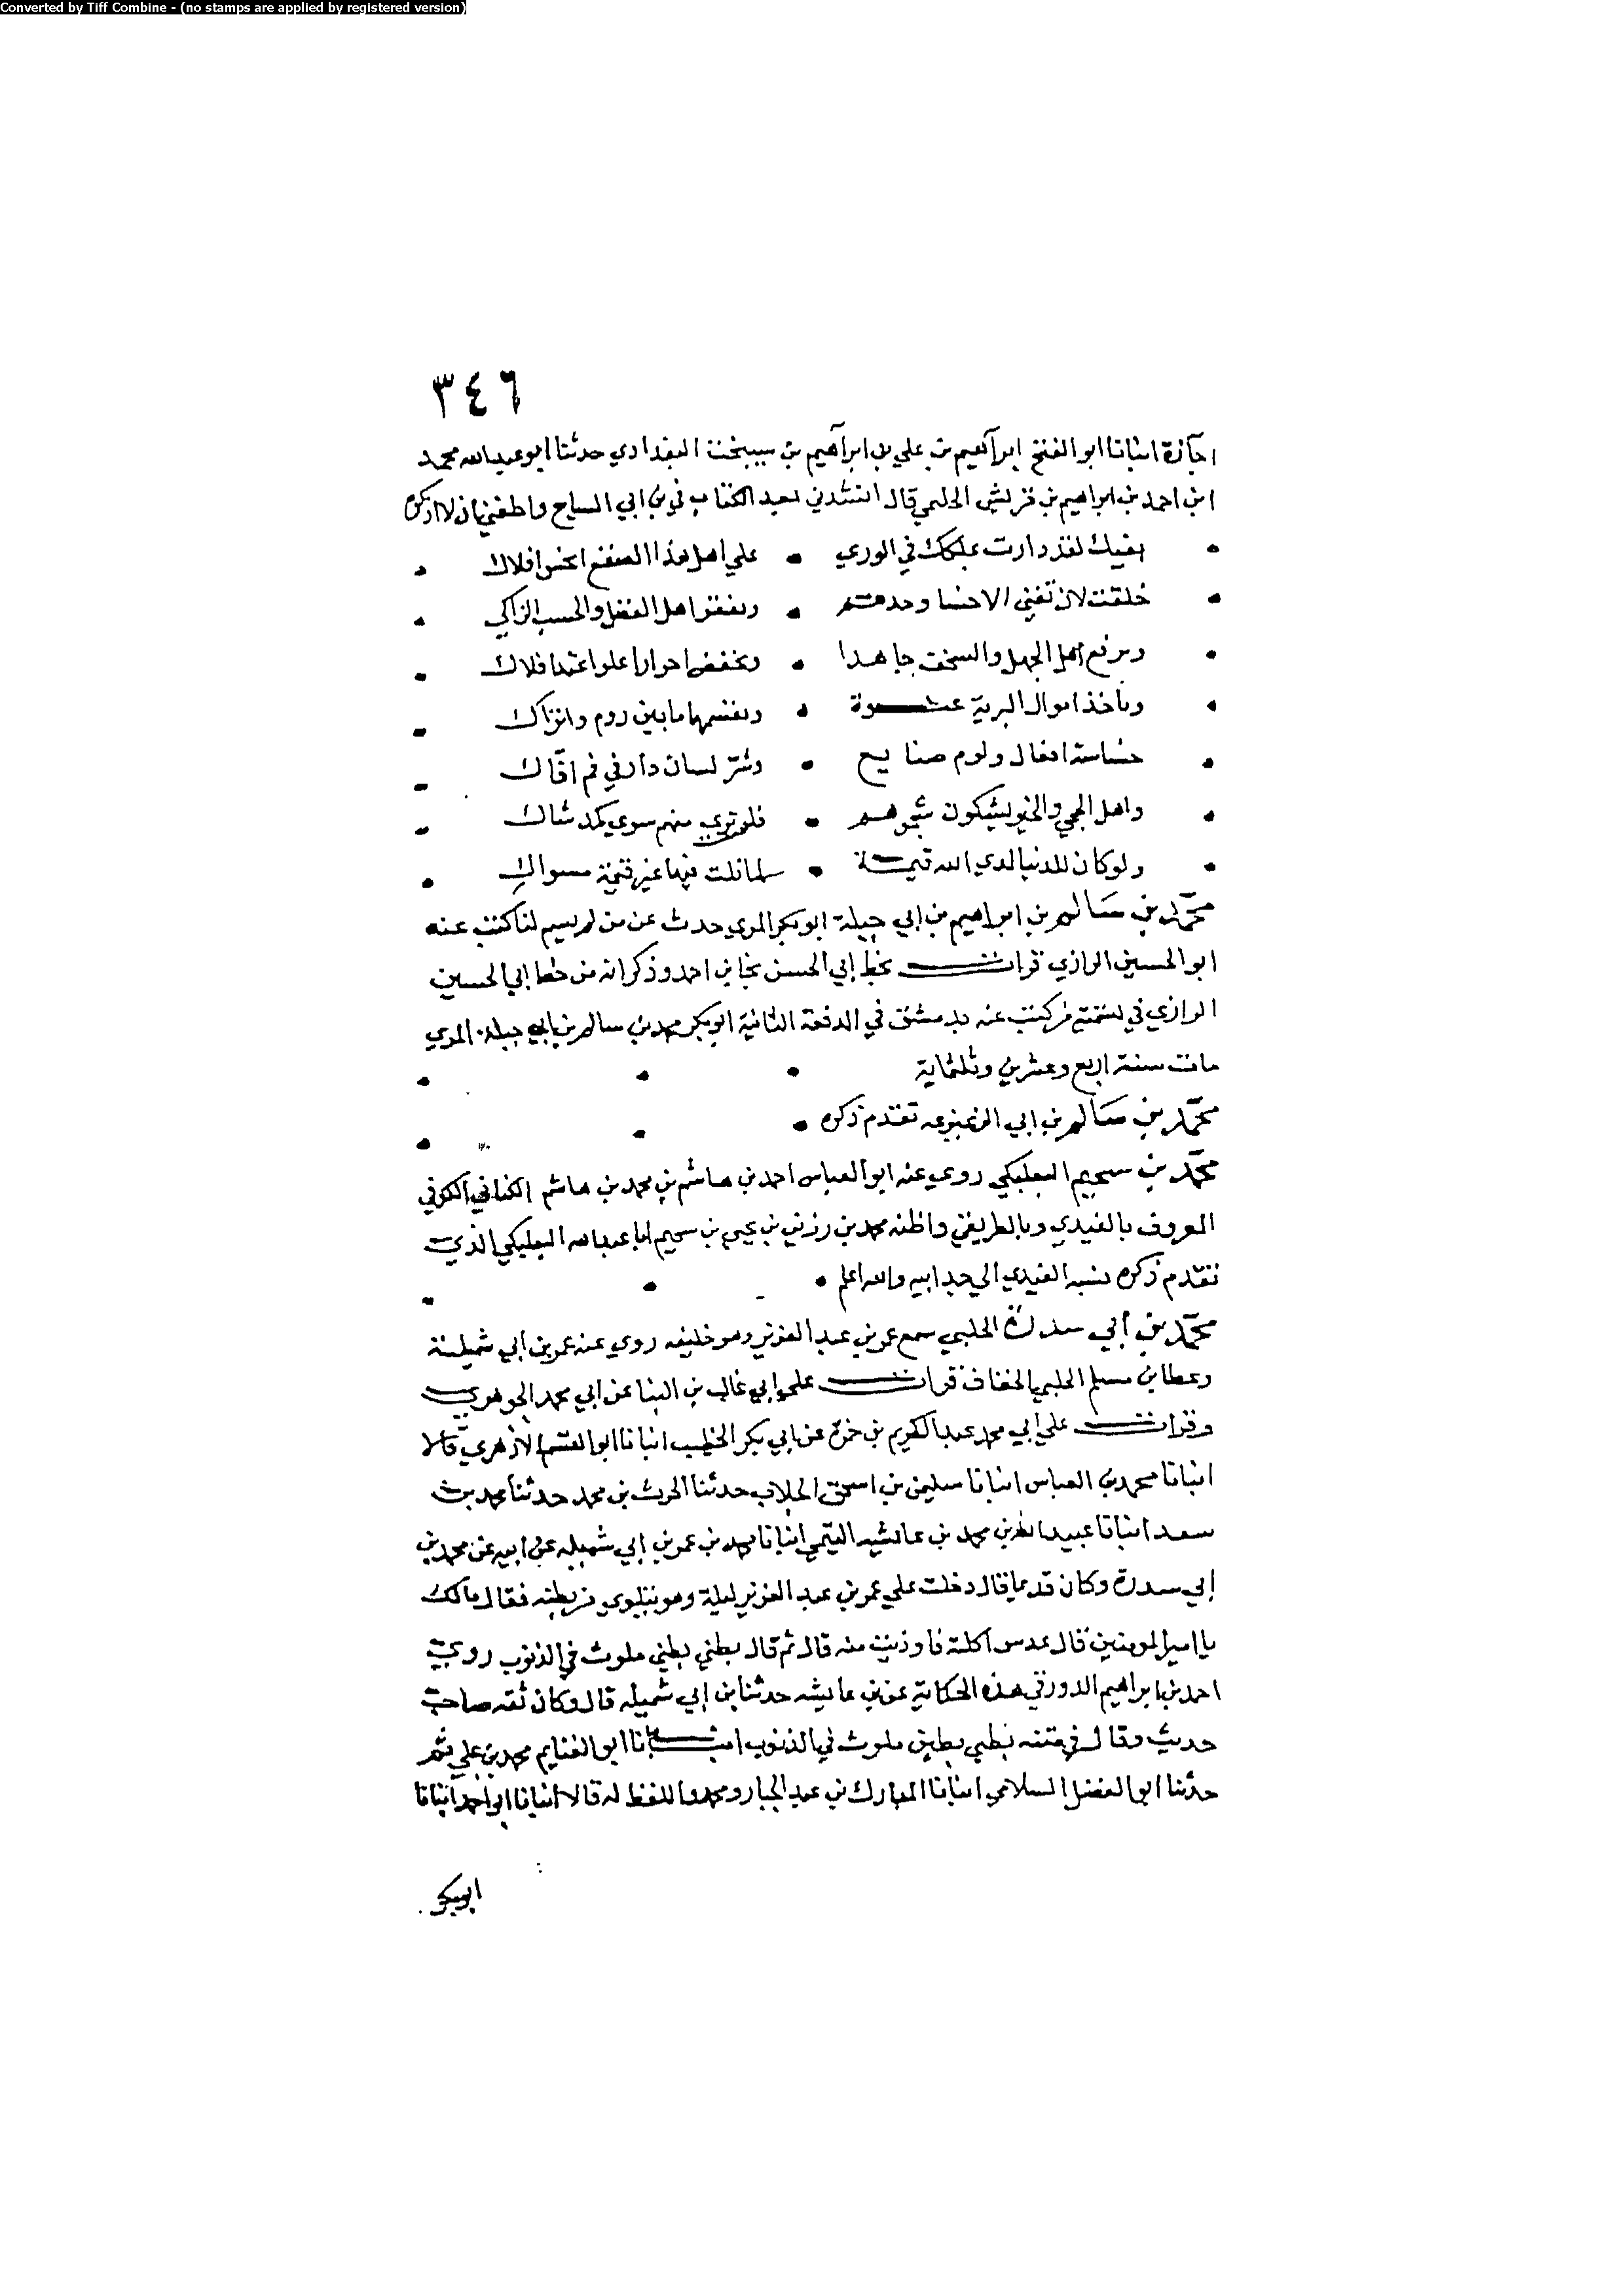 Converted by Tiff Combine - (no stamps are applied by registered version)
٣٤٦
اجازة انبانا ابو الفتح ابراهيم بن علي بن ابراهيم بن سيبخت البغدادي حدثنا ابو عبد الله محمد
ابن احمد بن ابراهيم بن قريش الحليمي قال انشدني بعض الكتاب في بن ابي الساج واطعني ان لا اذكره
لقد دارت بملكك في الوري • علي اهل هذا الصقع انحس افلاك
خلقت لان تفني الاحسا وحدهم • وتفقر اهل الفضل والحسب الزاكي
وترفع اهل الجهل والسخف جاهدا • وتخفض احرارا علوا
وتاخذ اموال البرية عنوة • وتقسمها ما بين روم واتراك
خساسة افعال ولوم صنايع • وشر لسان دار في فم افاك
واهل الحجي والخير يشكون شجوهم • فلم تري منهم سوي كمد شاك
ولو كان للدنيا لدي الله قيمة • لما نلت فيها غير قيمة مسواك
محمد بن سالم بن ابراهيم بن ابي جبلة ابو بكر المري حدث عن من لم يسم لنا كتب عنه
ابو الحسين الرازي قرات بخط ابي الحسن نجا بن احمد وذكر انه من خط ابي الحسين
الرازي في تسمية من كتب عنه بدمشق في الدفعة الثانية ابو بكر محمد بن سالم بن ابي جبلة المري
مات سنة اربع وعشرين وثلثماية
محمد بن سالم بن ابي الزعيزعه تقدم ذكره
محمد بن سحيم البعلبكي روي عنه ابو العباس احمد بن هاشم بن محمد بن هاشم الكناني الكوفي
المعروف بالفيدي وبالطريفي واظنه محمد بن رزين بن يحيي بن سحيم ابا عبد الله البعلبكي الذي
تقدم ذكره نسبه الفيدي الي جد ابيه والله اعلم
محمد بن ابي سدرة الحلبي سمع عمر بن عبد العزيز وهو خليفه روي عنه عمر بن ابي شميلة
وعطا بن مسلم الحلبي الخفاف قرات علي ابي غالب بن البنا عن ابي محمد الجوهري
وقرات علي ابي محمد عبد الكريم بن حمزة عن ابي بكر الخطيب انبانا ابو القسم الازهري قالا
انبانا محمد بن العباس انبانا سليمن بن اسحق الجلاب حدثنا الحرث بن محمد حدثنا محمد بن
سعد انبانا عبيد الله بن محمد بن عائشه التيمي انبانا محمد بن عمر بن ابي شميله عن ابيه عن محمد بن
ابي سدرة وكان قديما قال دخلت علي عمر بن عبد العزيز ليلة وهو يتلوي من بطنه فقال مالك
يا امير المومنين قال عدس اكلته فاوذيت منه قال ثم قال بطني بطني ملوث في الذنوب روي
احمد بن ابراهيم الدورقي هذه الحكاية عن بن عائشه حدثنا بن ابي شميله قال وكان ثقه صاحب
حديث وقال في متنه بطني بطني ملوث في الذنوب انبانا ابو الغنايم محمد بن علي ثم
حدثنا ابو الفضل السلامي انبانا المبارك بن عبد الجبار ومحمد واللفظ له قالا انبانا ابو احمد انبانا
ابو بكر